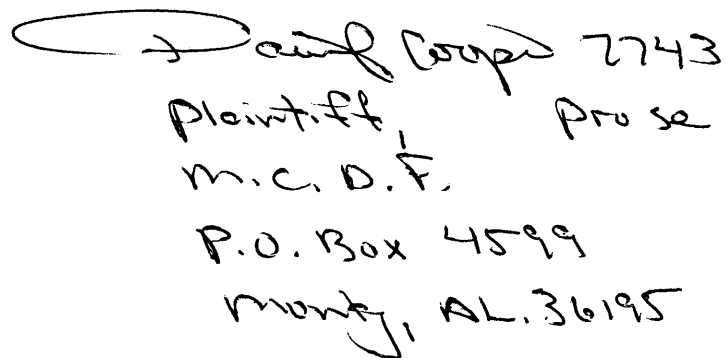 David Cooper 7743
Plaintiff, pro se
M.C.D.F.
P.O. Box 4599
Montg, AL. 36195